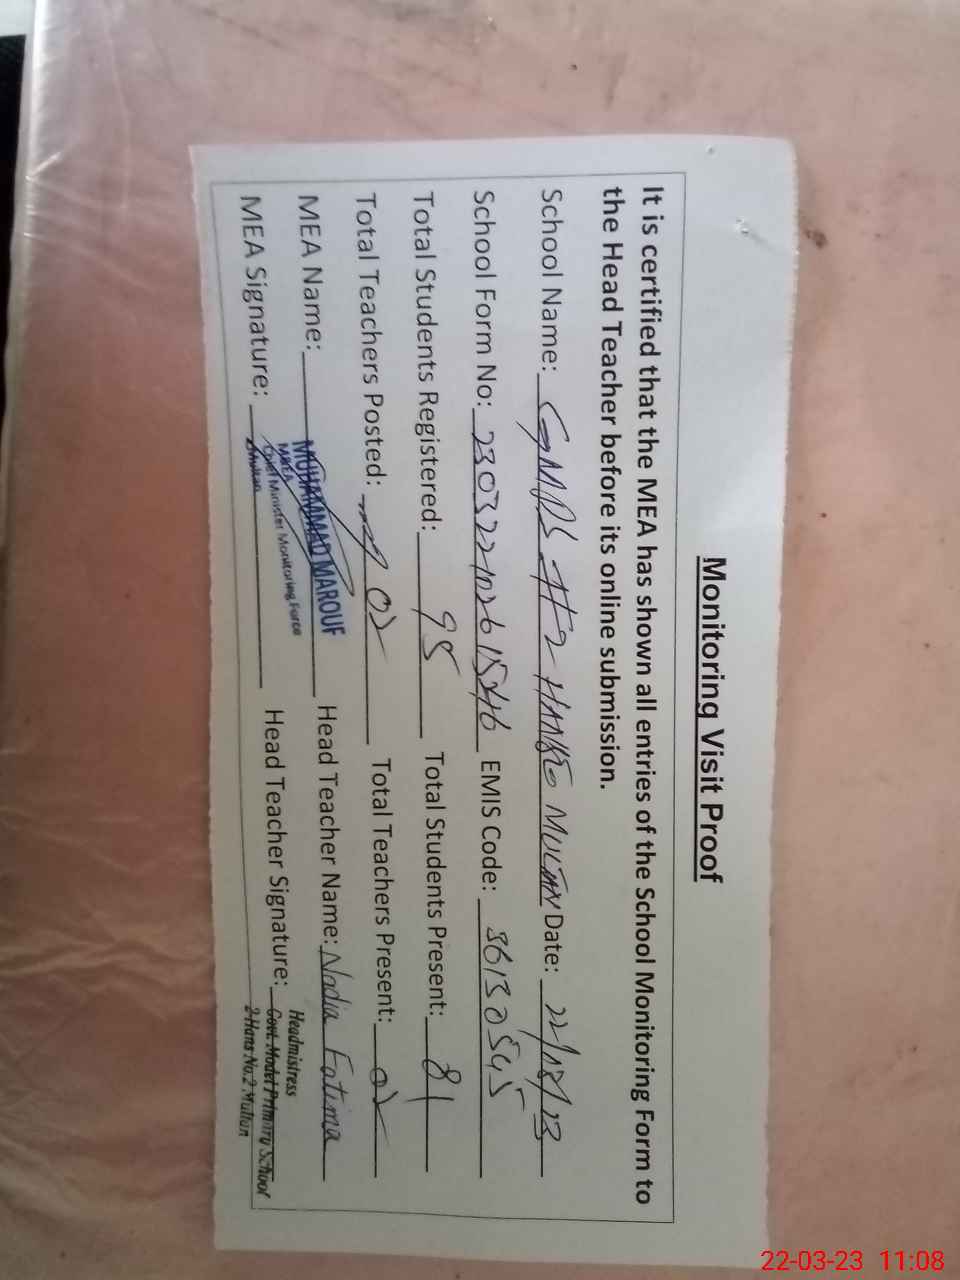 Monitoring Visit Proof
It is certified that the MEA has shown all entries of the School Monitoring Form to
the Head Teacher before its online submission.
School Name: GMPS #2 Date: 22/
School Form No: EMIS Code: 36130545
Total Students Registered: 95 Total Students Present: 81
Total Teachers Posted: 02 Total Teachers Present: 02
MEA Name: MUHAMMAD MAROUF Head Teacher Name: Nadia Fatima
MEA
Chief Minister Monitoring Force
Multan
MEA Signature: Head Teacher Signature:
Headmistress
Govt. Model Primary School
2-Hans No.2 Multan
22-03-23 11:08